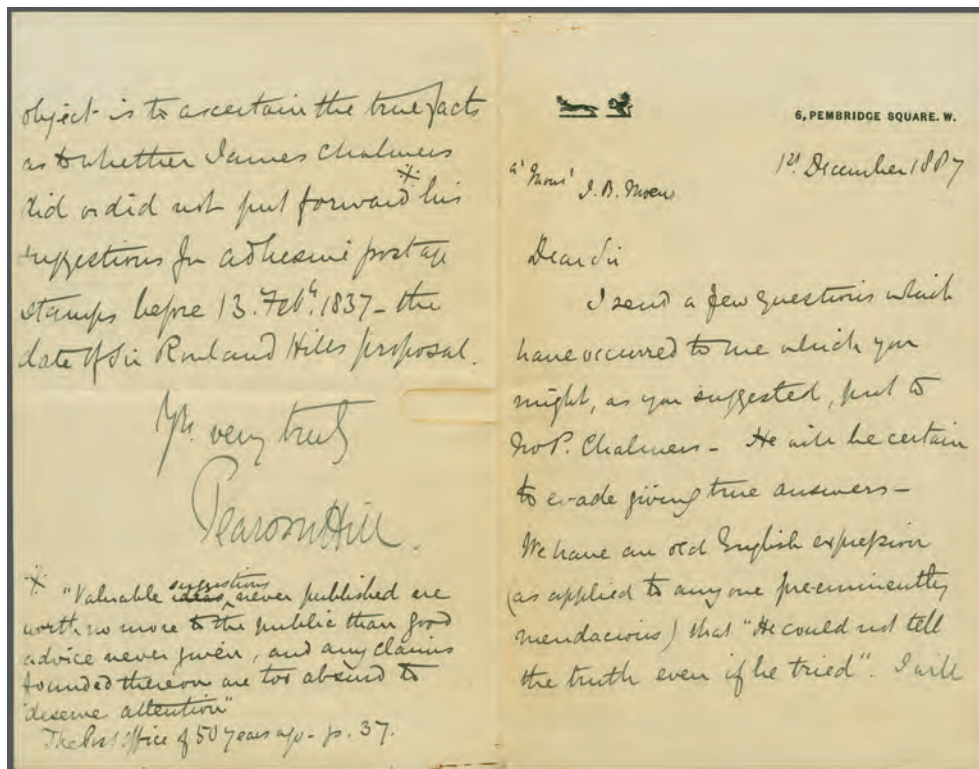 object is to ascertain the true facts
as to whether James Chalmers
did or did not put forward * his
suggestions for adhesive postage
stamps before 13. Feby. 1837 - the
date of Sir Rowland Hills proposal.
Yrs. very truly
Pearson Hill.
* "Valuable ideas suggestions never published are
worth no more to the public than good
advice never given, and any claims
founded thereon are too absurd to
deserve attention"
The Post Office of 50 years ago - p. 37.
6, PEMBRIDGE SQUARE. W.
1st December 1887
J. B. Moens
Dear Sir
I send a few questions which
have occurred to me which you
might, as you suggested, put to
Mr P. Chalmers - He will be certain
to evade giving true answers -
We have an old English expression
(as applied to any one preeminently
mendacious) that "He could not tell
the truth even if he tried". I will